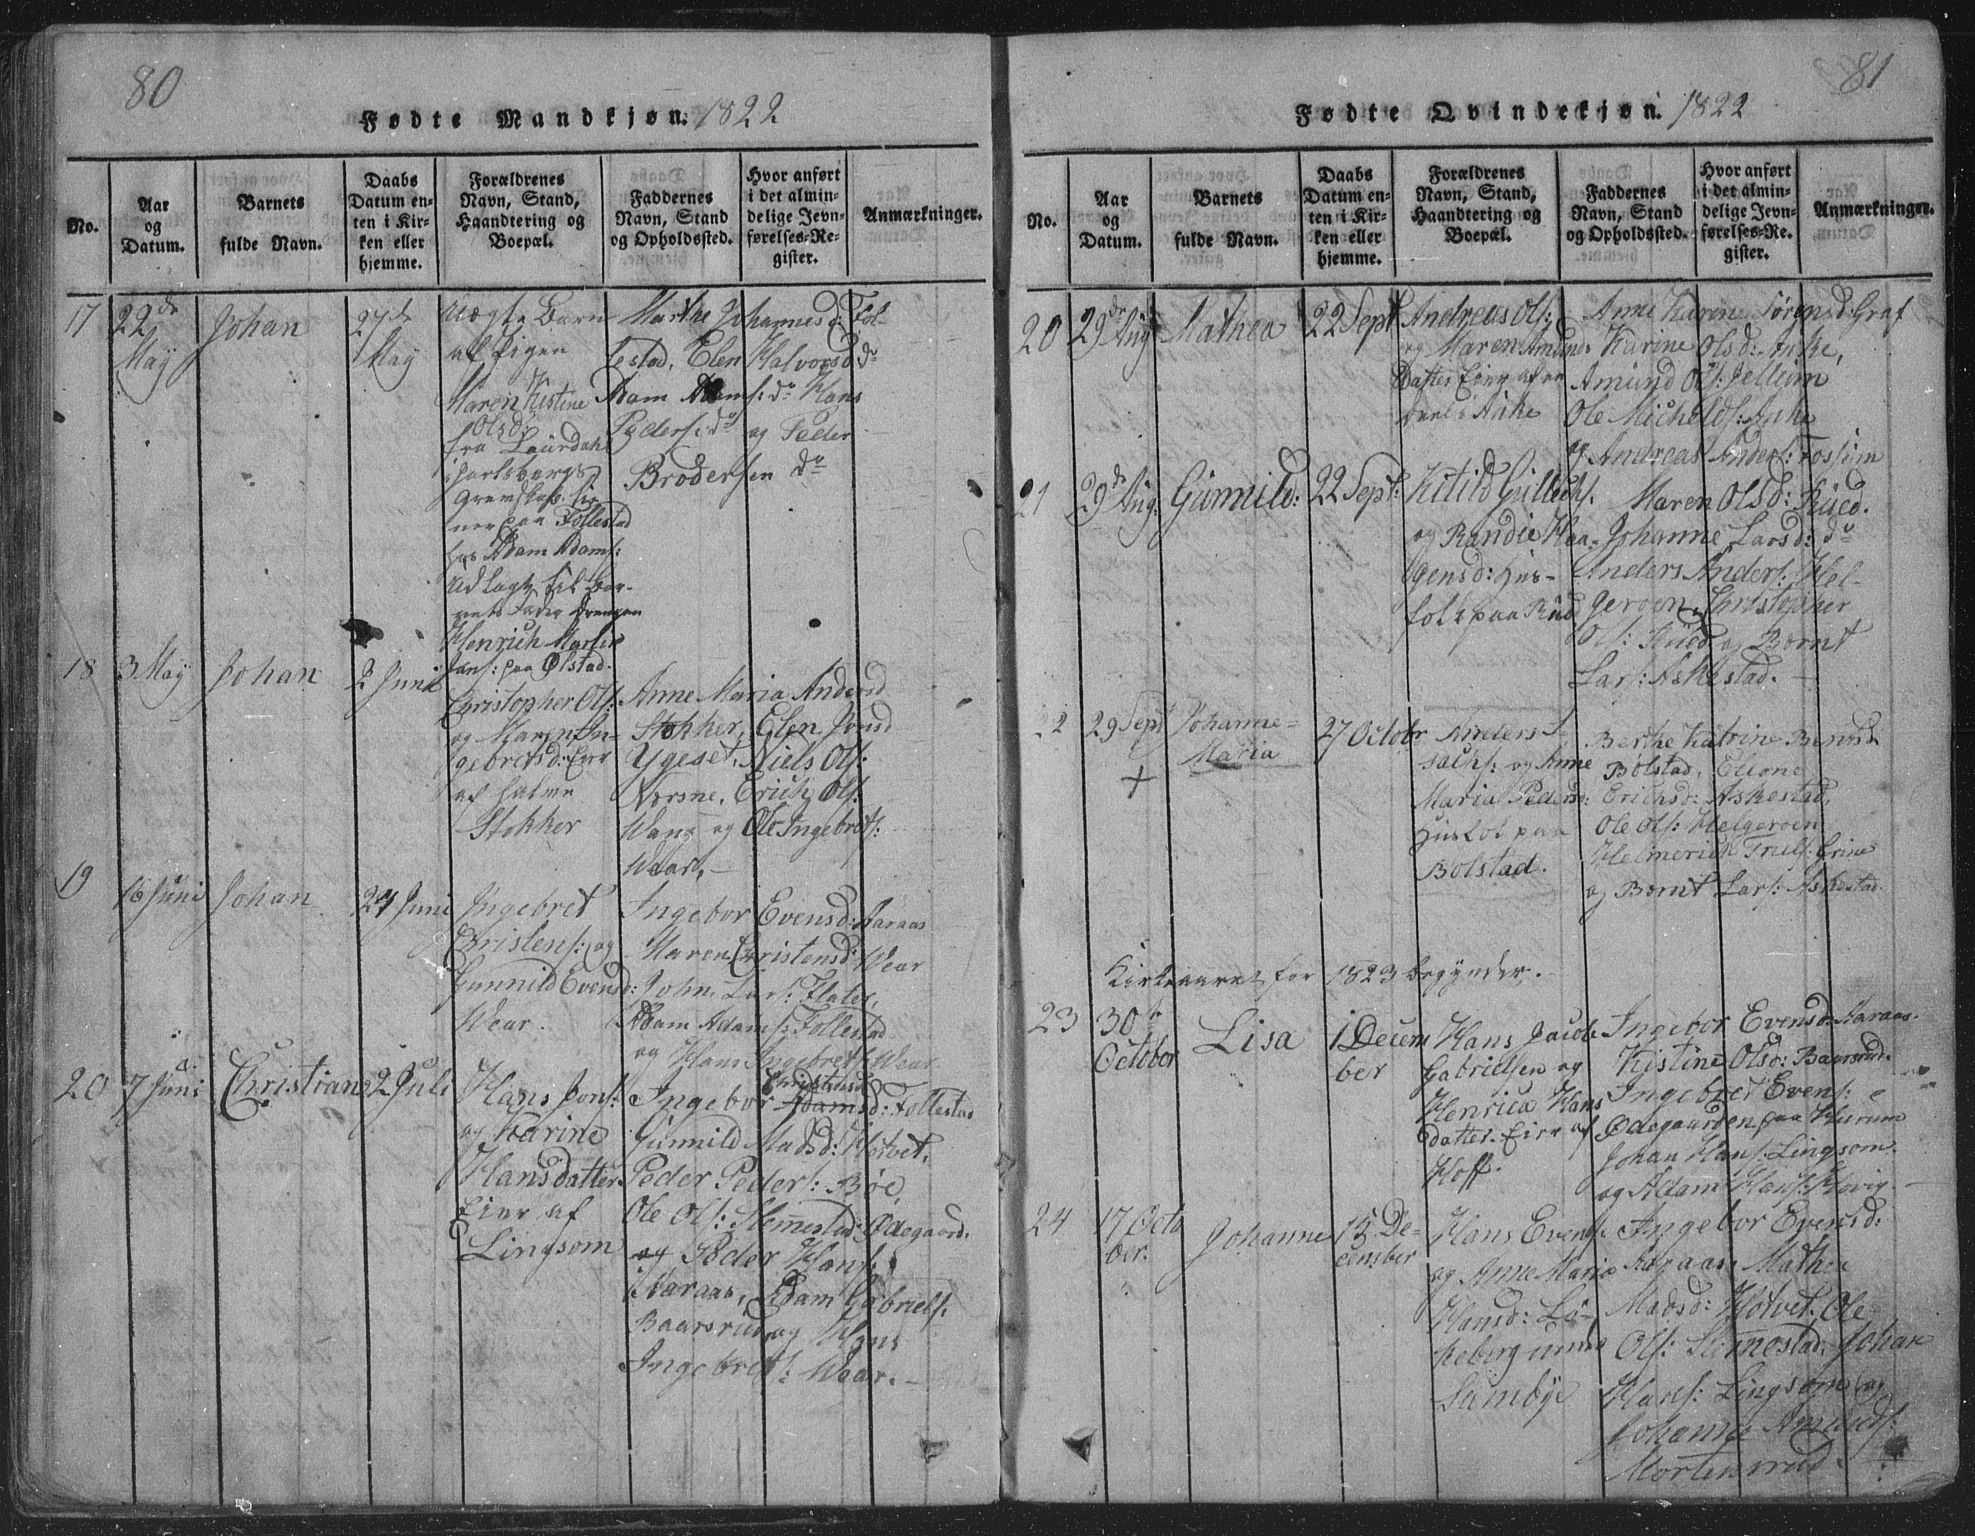 80
Fødte Mandkjøn. 1822
No.
Aar
og
Datum.
Barnets
fulde Navn.
Daabs
Datum en-
ten i Kir-
ken eller
hjemme.
Forældrenes
Navn, Stand,
Haandtering og
Boepæl.
Faddernes
Navn, Stand
og Opholdssted.
Hvor anført
i det almin-
delige Jevn-
førelses-Re-
gister.
Anmærkninger.
17
22de
May
Johan
27de
May
Uægte Barn
af Pigen
Maren Kistine
Olsd:
fra Laurdahl
i Jarlsbergs
Grevskab
paa Follestad
hos Adam Adams:
Udlagt til Bar-
nets Fader Drengen
Henrich Martin
Jans: paa Ølstad.
Marthe Johannesd Fol-
lestad, Elen Halvorsd do
Adam Adams: do Hans
Peders: do og Peder
Brodersen do
18
3 May
Johan
2 Juni
Christopher Ols:
og Maren In-
gebretsd: Eier
af halve
Stokker
Anne Maria Andersd
Stokker, Elen Jonsd
Ygeset, Niels Ols:
Norsne, Erich Ols:
Wang og Ole Ingebrets:
Wear,
19
16 Juni
Johan
24 Juni
Ingebret
Christens: og
Gunnild Evensd:
Wear.
Ingebor Evensd: Aaraas
Maren Christensd: Wear
John Lars:
Adam Adams: Follestad
og Hans Ingebrets: Wear
20
7 Juni
Christian
2 Juli
Hans Jons:
og Karine
Hansdatter
Eier af
Lingsom
Christensd
Ingebor Adamsd: Follestad
Gunnild Madsd: Hotvet,
Peder Peders: Bøe,
Ole Ols: Slemmestad Ødegaard.
og Peder Hans:
Aaraas, Adam Gabriels:
Baarsrud og Hans
Ingebrets: Wear.
81
Fødte Qvindekjøn. 1822
No.
Aar
og
Datum.
Barnets
fulde Navn.
Daabs
Datum en-
ten i Kir-
ken eller
hjemme.
Forældrenes
Navn, Stand,
Haandtering og
Boepæl.
Faddernes
Navn, Stand
og Opholdssted.
Hvor anført
i det almin-
delige Jevn-
førelses-Re-
gister.
Anmærkninger.
20
29de Aug
Mathea
22 Sept
Andreas Ols:
og Maren Amunds
Datter Eier af en
Deel i Aake
Anne Karine Sørensd: Graf
Karine Olsd: Aake,
Amund Ols: Jelleim
Ole Michels: Aake
og Andreas Anders: Fossum
21
29de Aug:
Gunnild:
22 Sept:
Kitild Gullichs.
og Randie Haa-
gensd: Hus-
folk paa Rud
Maren Olsd: Rued.
Johanne Larsd: do
Anders Anders: Hel-
geroen, Christopher
Ols: Rued og Bernt
Lars: Askestad.
22
29 Sept
+
Johanne-
Maria
27 Octobr
Anders I-
sachs: og Anne
Maria Pedersd:
Husfolk paa
Bolstad.
Berthe Katrine Berntsd
Bolstad, Elione
Erichsd: Askestad,
Ole Ols: Helgeroen
Helmerich Truls: Grine
og Bernt Lars: Askestad.
Kirkeaaret for 1823 begynder.
23
30te
October
Lisa
1 Decem
ber
Hans Jacob
Gabrielsen og
Henrica Hans
datter. Eier af
Hoff.
Ingebor Evensd: Aaraas.
Kistine Olsd: Baarsrud.
Ingebret Evens:
Ødegaarden paa Hurum
Johan Hans: Lingsom.
og Adam Hans: Høvig
24
17 Octo
ber.
Johanne
15 De-
cember
Hans Evens:
og Anne Maria
Hansd: Lø-
keberg under
Sandbye
Ingebor Evensd:
Aaraas, Mathea
Madsd: Hotvet, Ole
Ols: Slemestad, Johan
Hans: Lingsom og
Johanne Amunds:
Mortensrud.